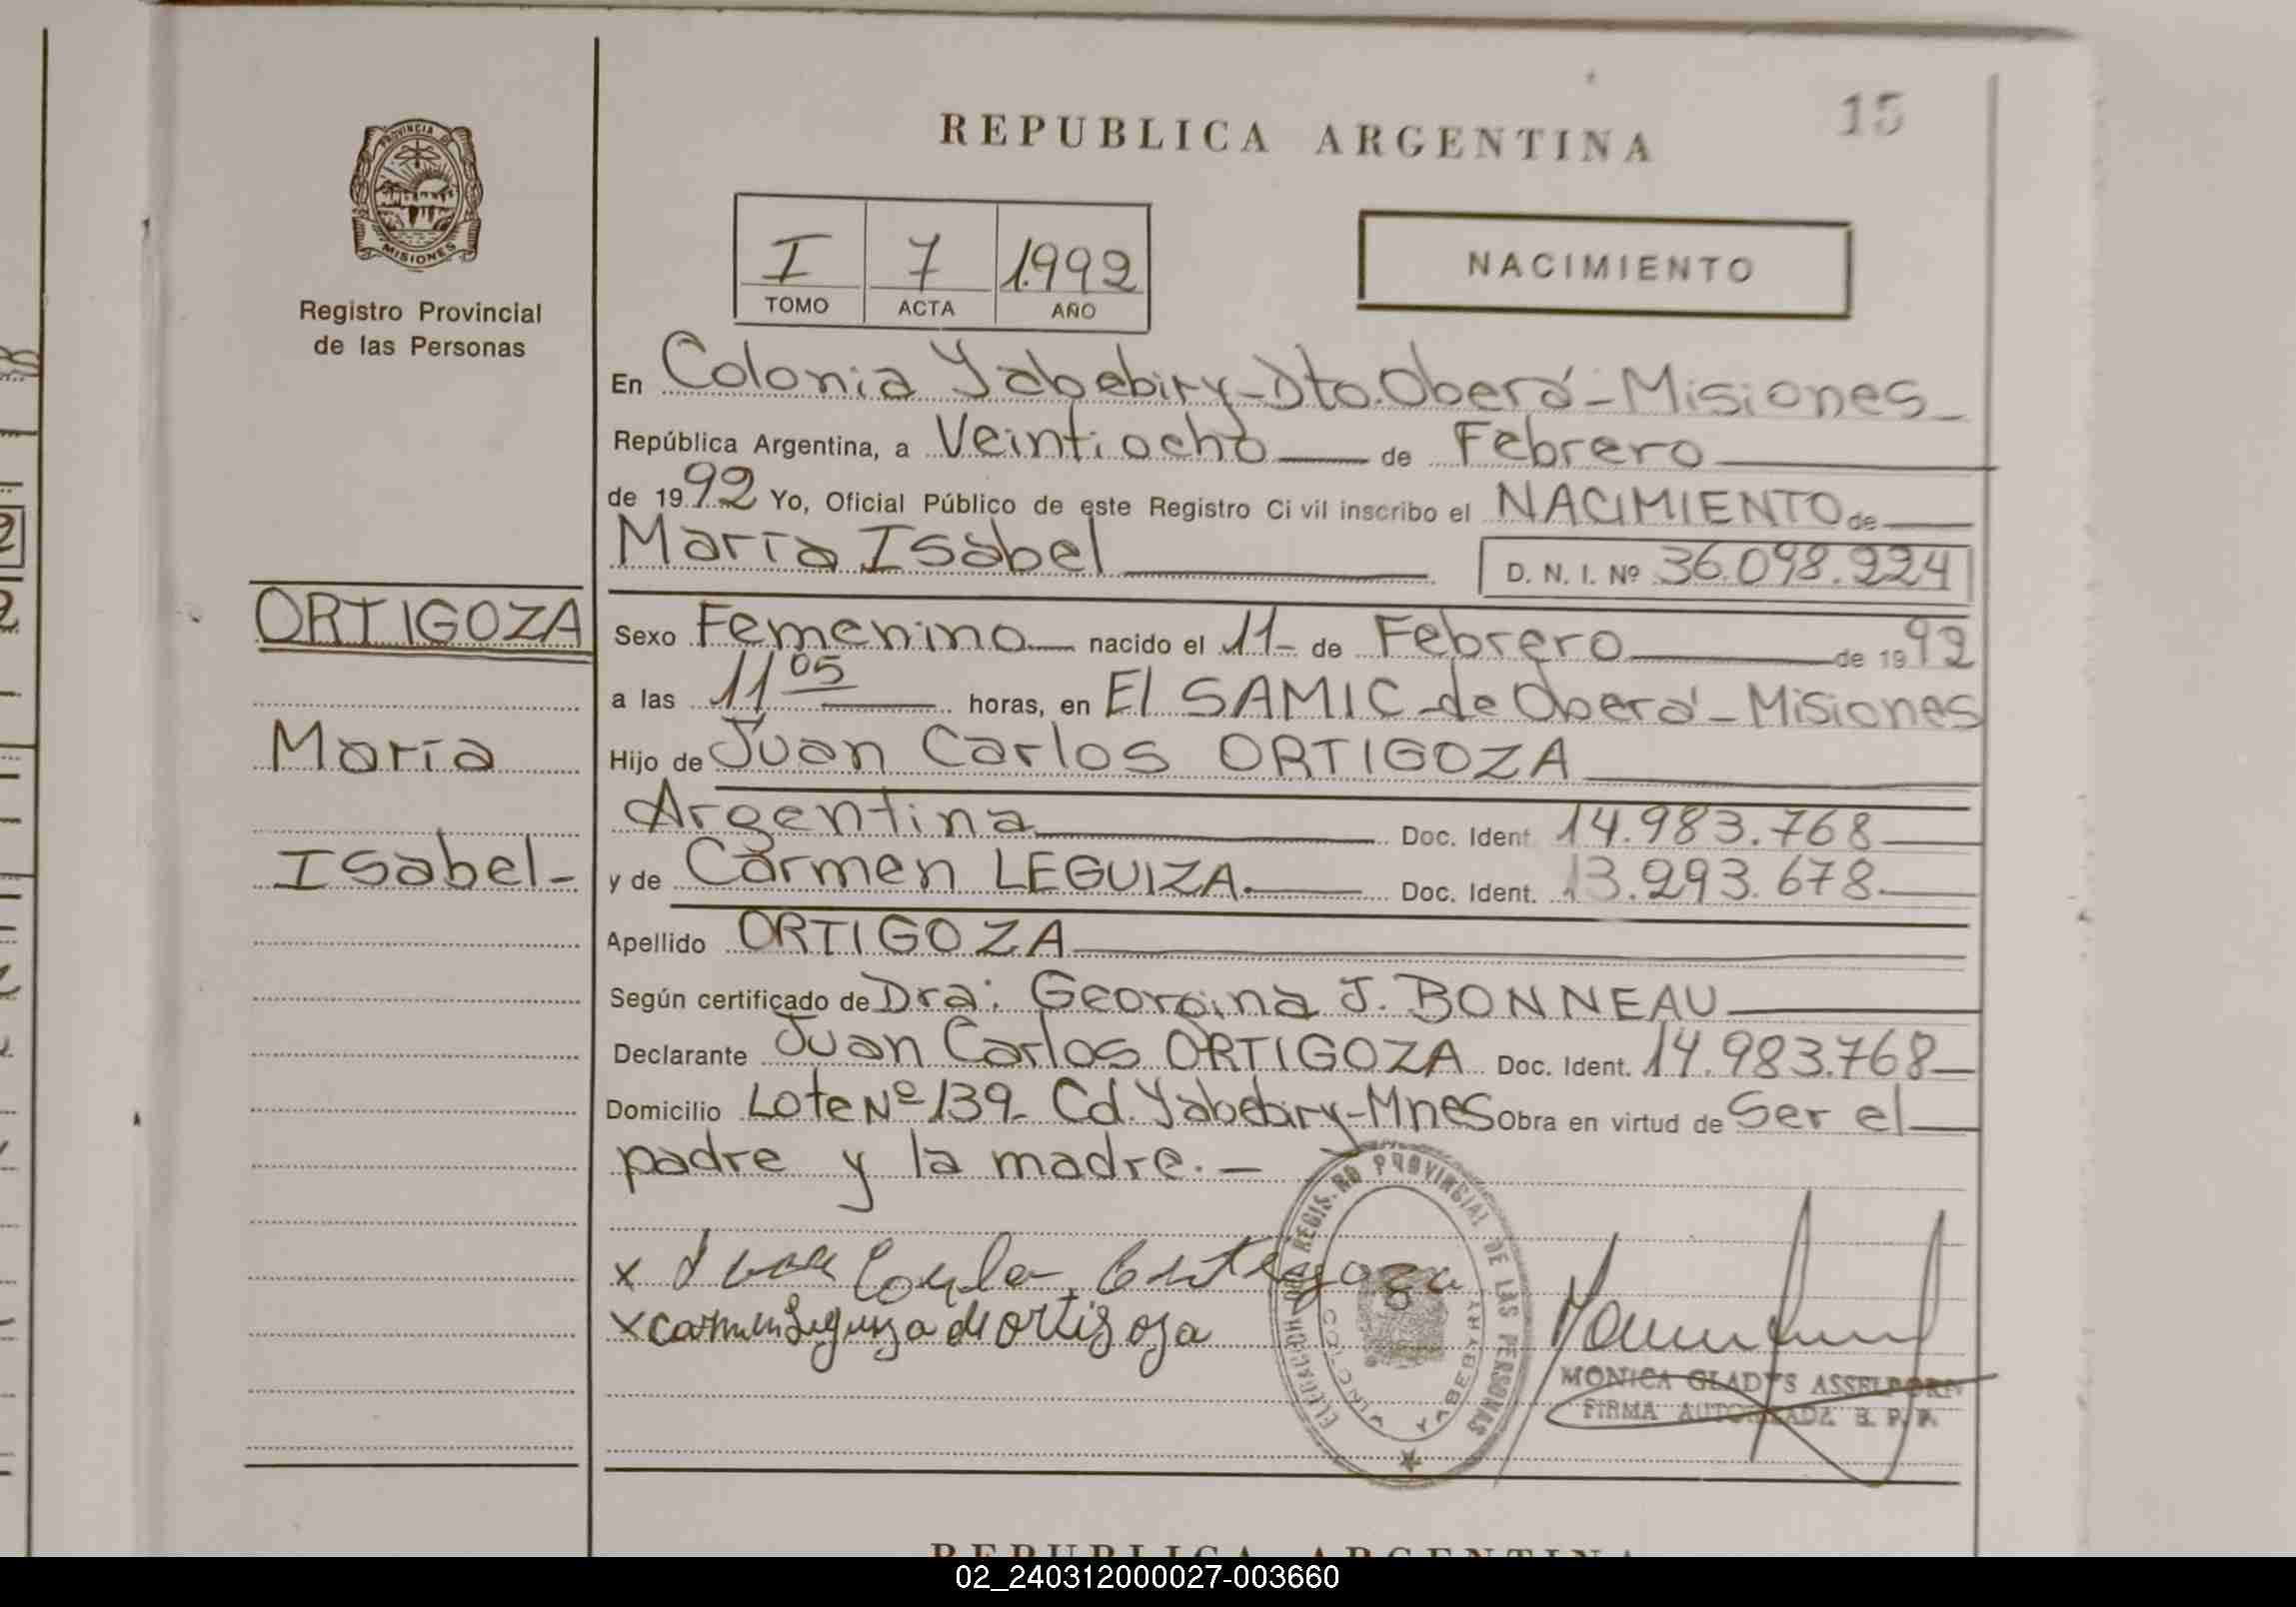 15
REPUBLICA ARGENTINA
PROVINCIA DE
MISIONES
Registro Provincial
de las Personas
I 7 1.992
TOMO ACTA AÑO
NACIMIENTO
En Colonia Yabebiry-Dto.Oberá-Misiones
República Argentina, a Veintiocho de Febrero
de 1992 Yo, Oficial Público de este Registro Ci vil inscribo el NACIMIENTO de
María Isabel D. N. I. Nº 36.098.224
ORTIGOZA
María
Isabel-
Sexo Femenino nacido el 11- de Febrero de 1992
a las 11 05 horas, en El SAMIC de Oberá-Misiones
Hijo de Juan Carlos ORTIGOZA
Argentina Doc. Ident 14.983.768
y de Carmen LEGUIZA. Doc. Ident. 13.293.678
Apellido ORTIGOZA
Según certificado de Dra: Georgina J. BONNEAU
Declarante Juan Carlos ORTIGOZA Doc. Ident. 14.983.768
Domicilio Lote Nº 139- Cd. Yabebiry-Mnes Obra en virtud de Ser el
padre y la madre.-
x Juan Carlos Ortigoza
x carmen Leguiza de ortigoza
REGISTRO PROVINCIAL DE LAS PERSONAS
COLONIA YABEBIRY
MONICA GLADYS ASSELBORN
FIRMA AUTORIZADA R. P. P.
REPUBLICA ARGENTINA
02_240312000027-003660